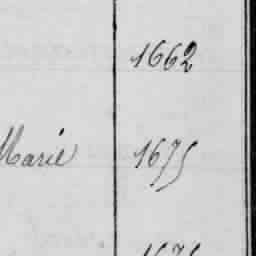 1662
Marie 1675